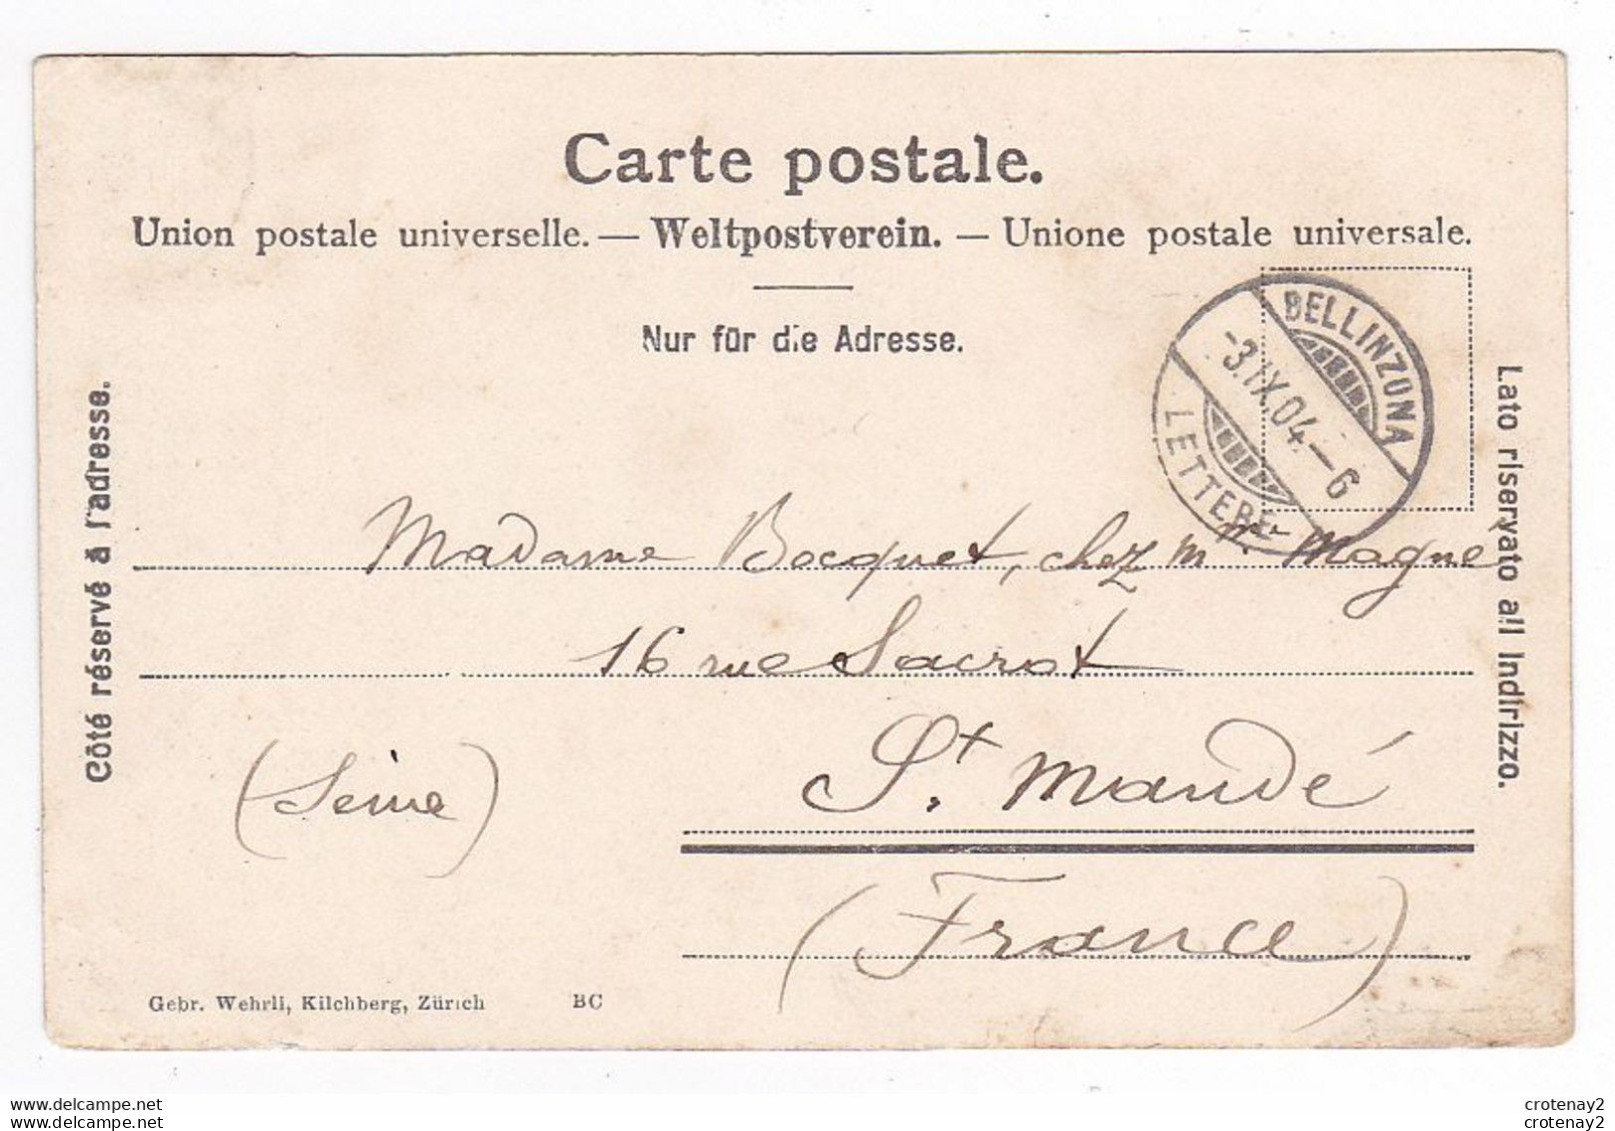 Carte postale.
Union postale universelle. — Weltpostverein. — Unione postale universale.
Nur für die Adresse.
Côté réservé à l'adresse.
Lato riservato all Indirizzo.
BELLINZONA
-3.IX.04.-6
LETTERE
Madame Bocquet, chez Mr Magne
16 rue Sacrot
St. Mandé
(Seine)
(France)
Gebr. Wehrli, Kilchberg, Zürich BC
www.delcampe.net
www.delcampe.net
crotenay2
crotenay2